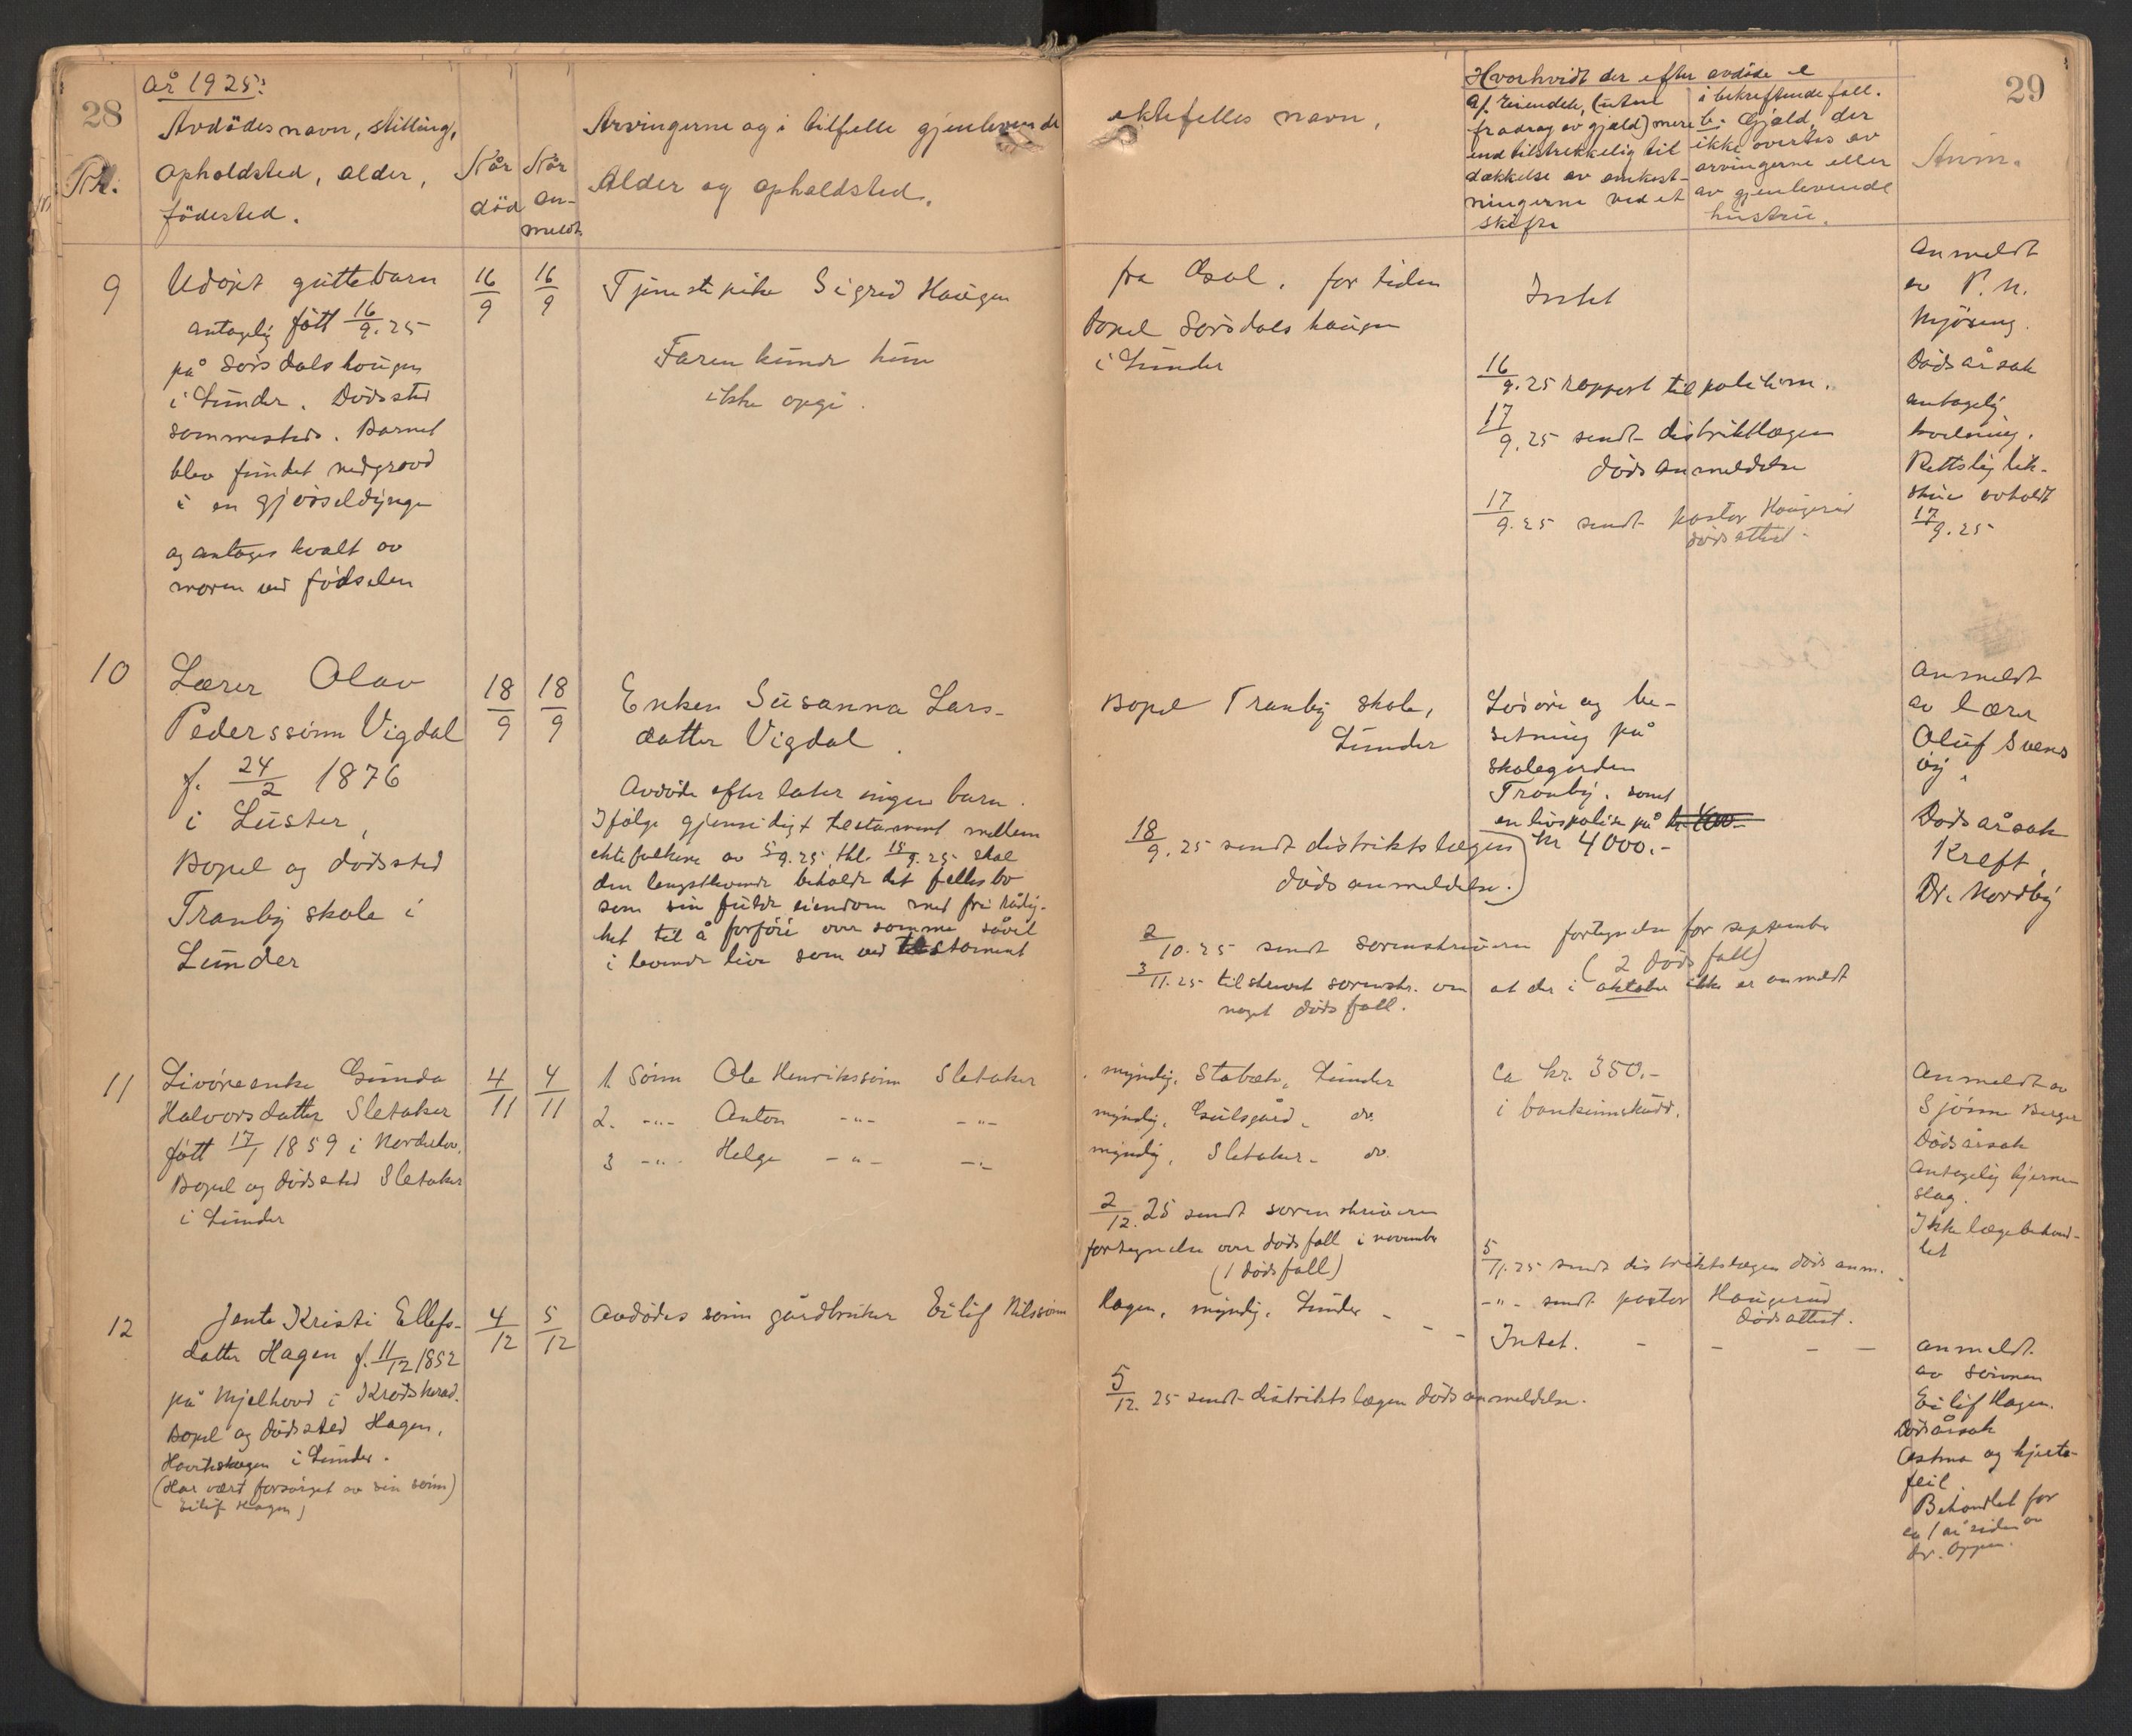 28
År 1925:
Nr.
Avdödes navn, stilling,
opholdsted, alder,
födested.
Når
död
Når
an-
meldt
Arvingerne og i tilfelle gjenlevende
Alder og opholdsted.
ektefelles navn,
Hvorhvidt der efter avdöde e
a/. eiendele, (uten
fradrag av gjæld) mere
end tilstrekkelig til
dækkelse av omkost-
ningerne ved et
skifte
i bekreftende fall.
b. Gjæld, der
ikke overtas av
arvingerne eller
av gjenlevende
hustru.
29
Anm.
9
Udöpt guttebarn
antagelig fött 16/9. 25
på Sörsdalshaugen
i Lunder. Dödssted
sammesteds. Barnet
blev fundet nedgravd
i en gjödseldynge
og antages kvalt av
moren ved födselen
16/9
16/9
Tjenestepike Sigrid Haugen
Faren kunde hun
ikke opgi.
fra Aal, for tiden
bopel Sörsdalshaugen
i Lunder
Intet
16/9. 25 rapport til politiem.
17/9. 25 sendt distriktlægen
dödsanmeldelse
17/9. 25 sendt pastor Haugerud
dödsattest.
Anmeldt
av P. N.
Mjöseng.
Dödsårsak
antagelig
kvelning.
Rettslig lik-
skue avholdt
17/9. 25
10
Lærer Olav
Pederssönn Vigdal
f. 24/2 1876
i Luster,
Bopel og dödssted
Tranby skole i
Lunder
18/9
18/9
Enken Susanna Lars-
datter Vigdal.
Avdöde efterlater ingen barn.
Ifölge gjensidigt testament mellem
ektefolkene av 5/9. 25 thl. 15/9. 25 skal
den lengstlevende beholde det felles bo
som sin fulde eiendom med fri rådig-
het til å forföie over samme såvel
i levende live som ved testament
Bopel Tranby skole,
Lunder
18/9. 25 sendt distriktslægen
dödsanmeldelse.
Lösöre og be-
setning på
skolegarden
Tranby. samt
en livspolise på kr. 400.-
Kr 4000.-
2/10. 25 sendt sorenskriveren fortegnelse for september
(2 dödsfall)
3/11. 25 tilskrevet sorenskr. om at der i oktober ikke er anmeldt
noget dödsfall.
Anmeldt
av lærer
Oluf Svens
öy.
Dödsårsak
Kreft,
Dr. Nordby
11
Livöreenke Gunda
Halvorsdatter Sletaker
fött 17/1 1859 i Norderhov.
Bopel og dödssted Sletaker
i Lunder
4/11
4/11
1. Sönn Ole Henrikssönn Sletaker
2. -"- Anton -"- -"-
3 -"- Helge -"- -"-
myndig. Stabæk, Lunder
myndig, Gulsgård, do.
myndig, Sletaker- do.
2/12. 25 sendt sorenskriveren
fortegnelse over dödsfall i november
(1 dödsfall)
ca kr. 350.-
i bankinnskudd.
5/11. 25 sendt distriktslægen dödsanm.
-"- sendt pastor Haugerud
dödsattest.
Anmeldt av
Sjönne Berger
Dödsårsak
Antagelig hjerne
slag.
Ikke lægebehand-
let
12
Jente Kristi Ellefs-
datter Hagen f. 11/12 1852
på Mjelhovd i Krödsherad.
Bopel og dödssted Hagen,
i Lunder.
(Har vært forsörget av sin sönn)
Eilif Hagen)
4/12
5/12
Avdödes sönn gårdbruker Eilif Nilssönn
Hagen, myndig, Lunder - - -
Intet. - - - -
5/12. 25 sendt distriktslægen dödsanmeldelse.
Anmeldt
av sönnen
Eilif Hagen.
Dödsårsak
Astma og hjerte-
feil.
Behandlet for
ca 1 år siden av
dr. Oppen.